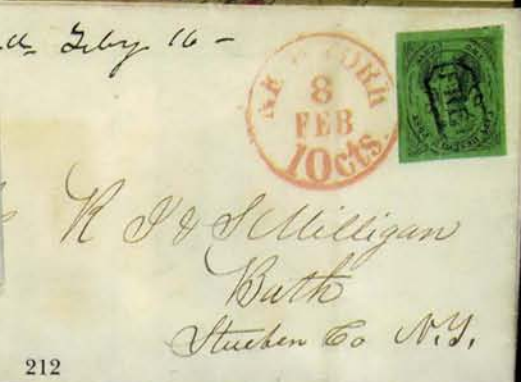 Feby 16 -
NEW YORK
8
FEB
10cts.
FREE
R I & S Milligan
Bath
Steuben Co N.Y.
212